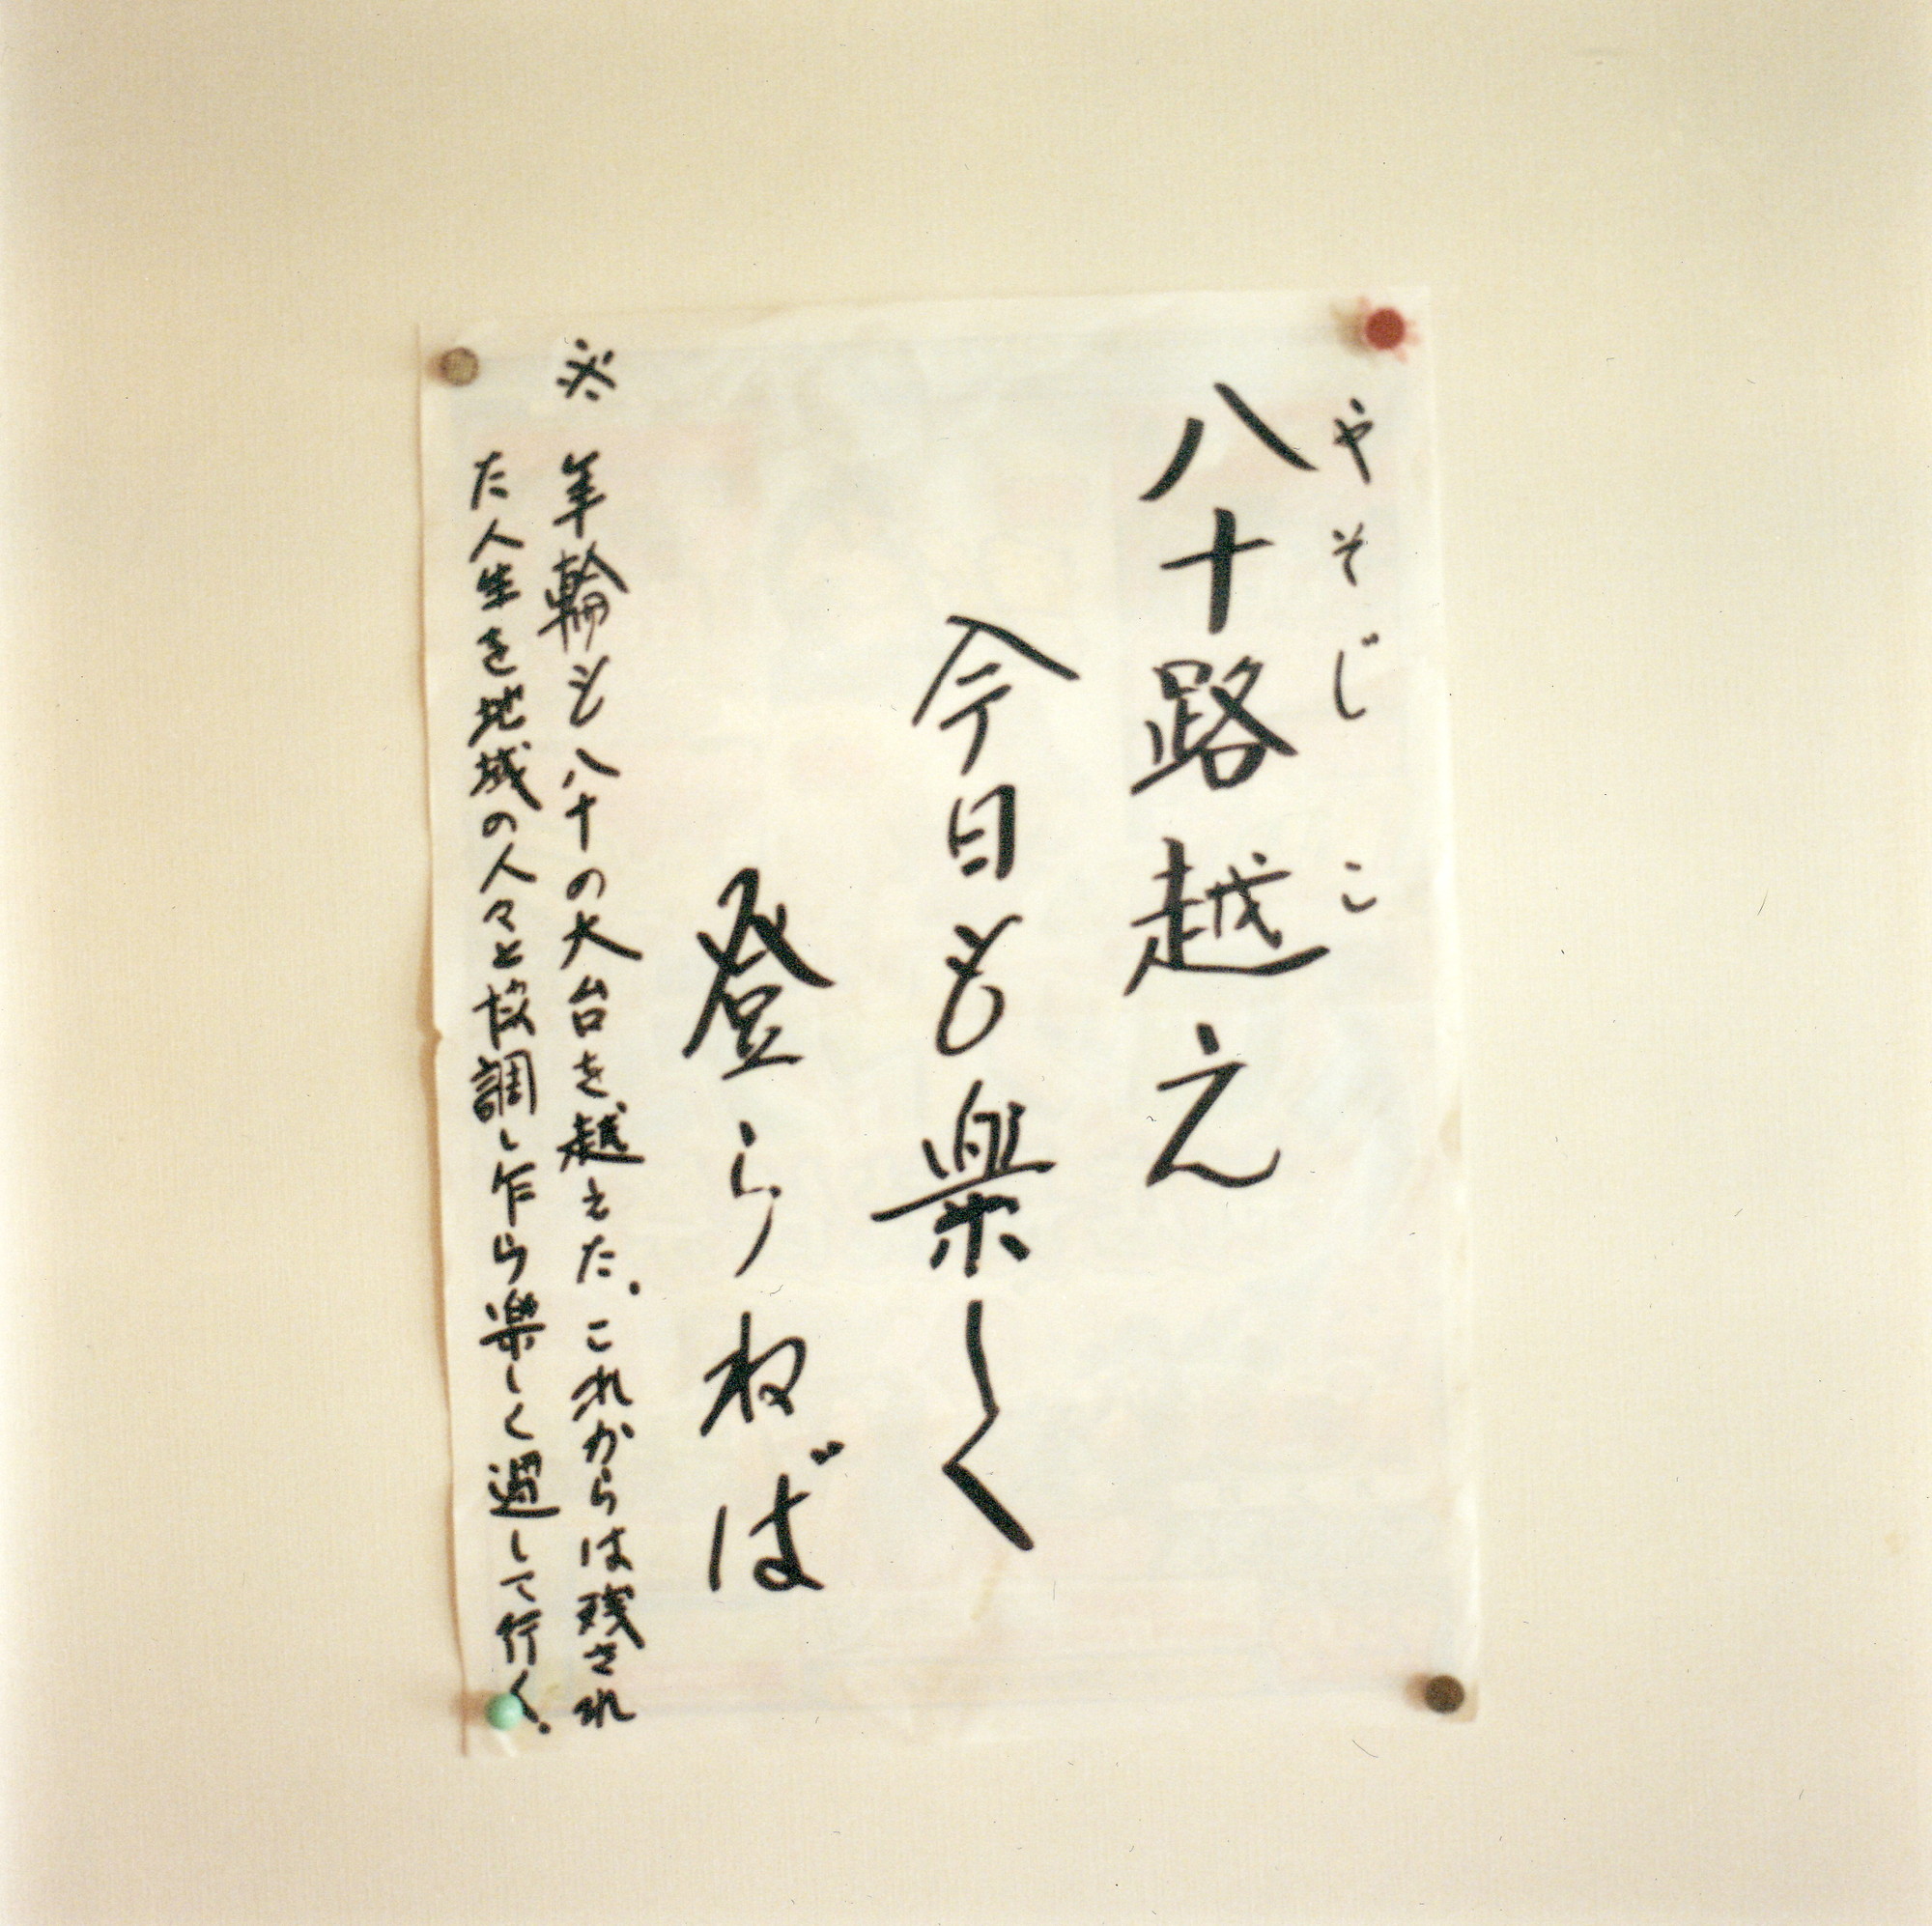 やそじ こ
八十路越え
今日も楽しく
登らねば
※ 年輪も八十の大台を越えた。これからは残され
た人生を地域の人々と協調し乍ら楽しく過して行く。